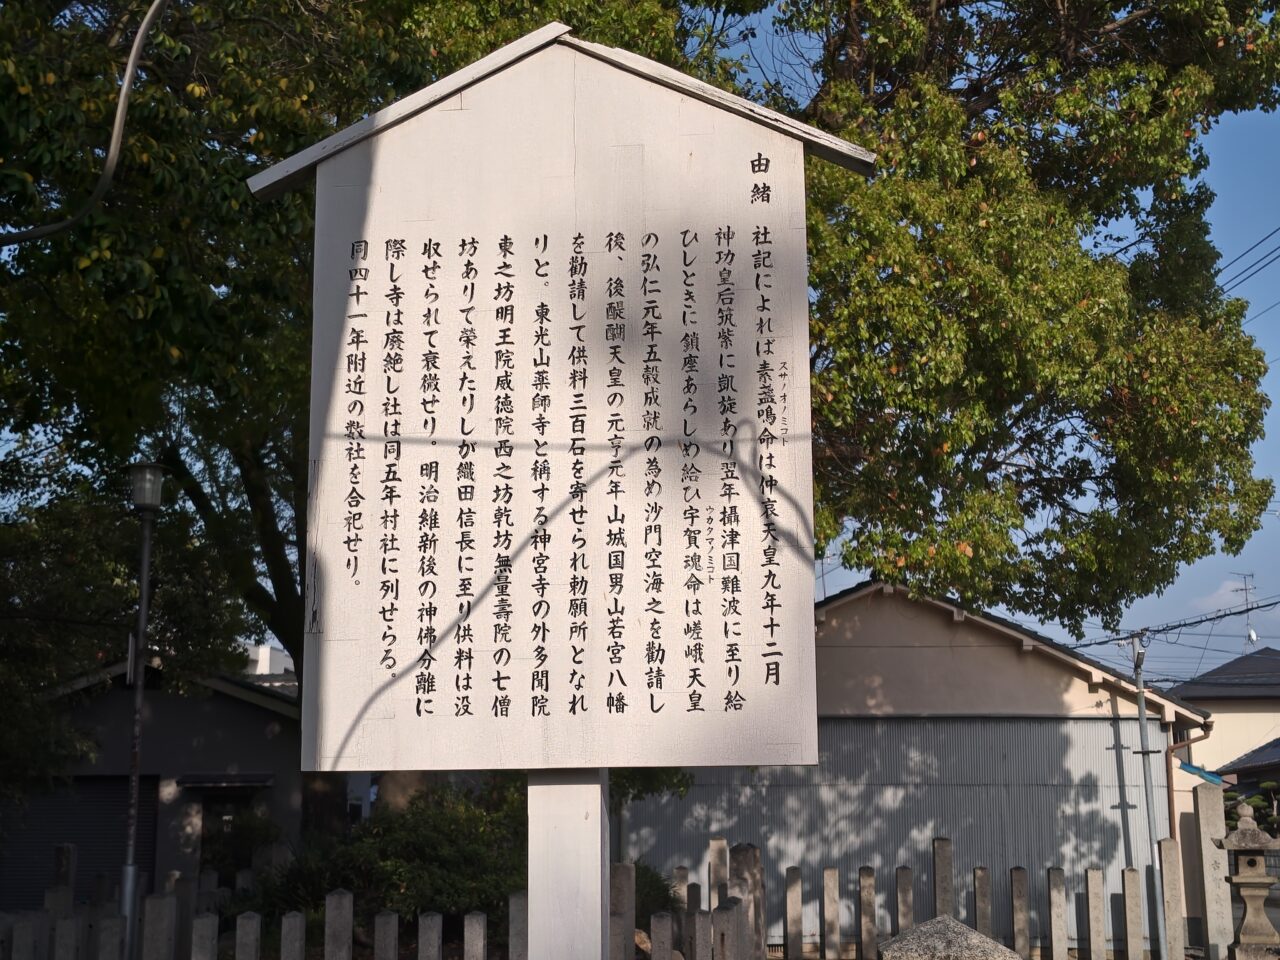 由緒
社記によれば素盞鳴命は仲哀天皇九年十二月
スサノオノミコト
神功皇后筑紫に凱旋あり翌年攝津国難波に至り給
ひしときに鎖座あらしめ給ひ宇賀魂命は嵯峨天皇
ウカタマノミコト
の弘仁元年五穀成就の為め沙門空海之を勸請し
後、後醍醐天皇の元亨元年山城国男山若宮八幡
を勸請して供料三百石を寄せられ勅願所となれ
りと。東光山薬師寺と稱する神宮寺の外多聞院
東之坊明王院威徳院西之坊乾坊無量壽院の七僧
坊ありて榮えたりしが織田信長に至り供料は没
収せられて衰微せり。明治維新後の神佛分離に
際し寺は廃絶し社は同五年村社に列せらる。
同四十一年附近の数社を合祀せり。